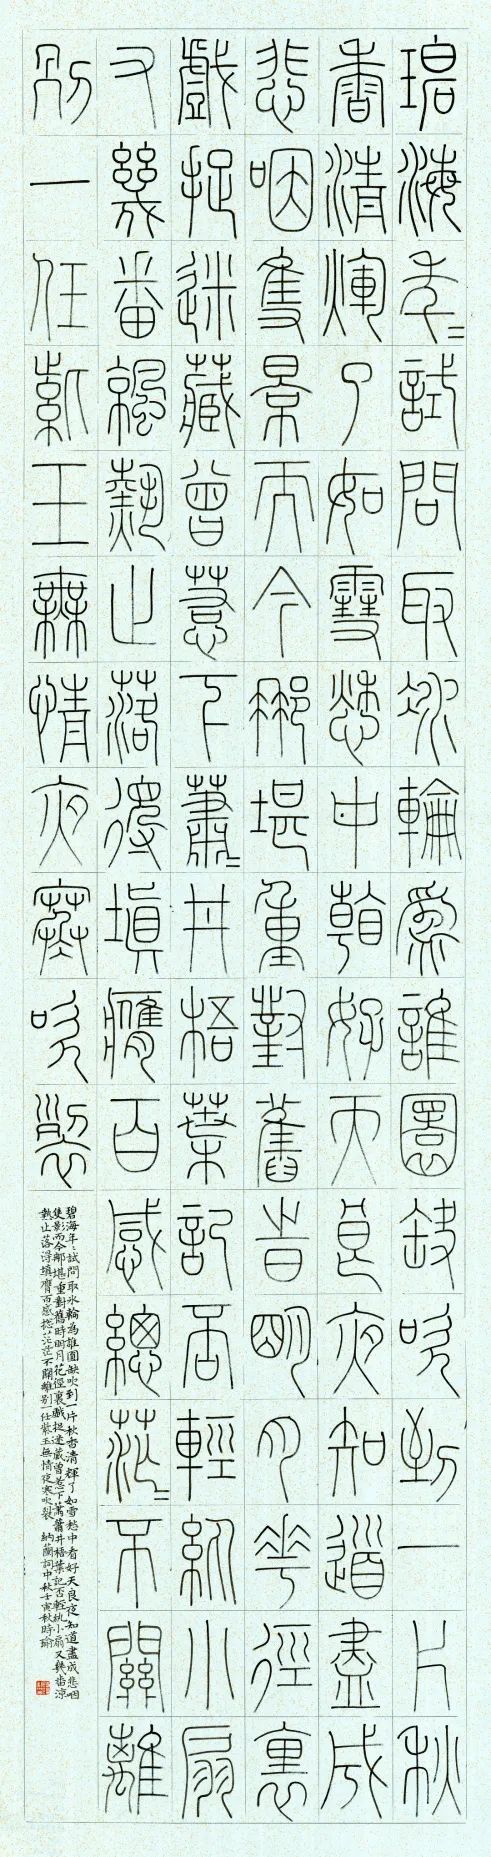 碧海年〻試問取冰輪為誰圓缺吹到一片秋
香清煇了如雪愁中看好天良夜知道盡成
悲咽隻景而今那堪重對舊時明月花徑裏
戲捉迷藏曾惹下蕭〻井梧葉記否輕紈小扇
又幾番涼熱止落得填膺百感總茫〻不關離
別一任紫玉無情夜寒吹裂
碧海年〻試問取冰輪為誰圓缺吹到一片秋香清輝了如雪愁中看好天良夜知道盡成悲咽
隻影而今那堪重對舊時明月花徑裏戲捉迷藏曾惹下蕭蕭井梧葉記否輕紈小扇又幾番涼
熱止落得填膺百感總茫茫不關離別一任紫玉無情夜寒吹裂 納蘭詞中秋壬寅秋時瑜